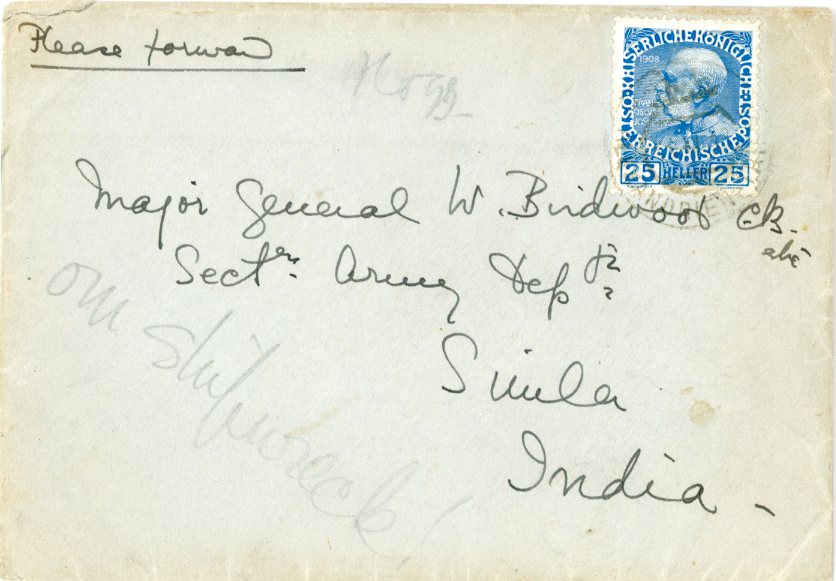 Please forward
Hogg
1908
KAISERLICHE KÖNIGLICHE
ÖSTERREICHISCHE POST
25 HELLER 25
Major General W. Birdwood CB.
etc
Sectry. Army Dept.
Simla
India -
on shipwreck!